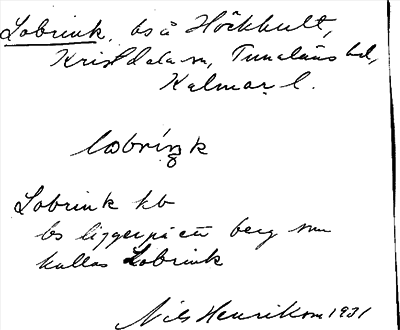 Lobrink, bs å Höckhult,
Kristdala sn, Tunaläns hd,
Kalmar l.
lωbríŋk
Lobrink kb
bs ligger på ett berg som
kallas Lobrink
Nils Henrikson 1931